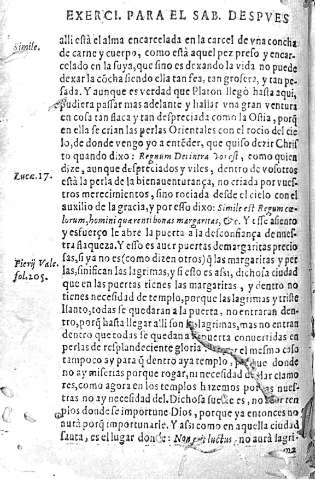 EXERCI. PARA EL SAB. DESPVES
Simile.
alli està el alma encarcelada en la carcel de vna concha
de carne y cuerpo, como està aquel pez preso y encar-
celado en la suya, que sino es dexando la vida no puede
dexar la cõcha siendo ella tan fea, tan grosera, y tan pe-
sada. Y aunque es verdad que Platon llegó hasta aqui,
pudiera passar mas adelante y hallar vna gran ventura
en cosa tan flaca y tan despreciada como la Ostia, porq̃
en ella se crian las perlas Orientales con el rocio del cie
lo, de donde vengo yo a entẽder, que quiso dezir Chris
Lucæ. 17.
to quando dixo: Regnum Dei intra vos est, como quien
dize, aunque despreciados y viles, dentro de vosotros
està la perla de la bienauenturança, no criada por vues-
tros merecimientos, sino rociada desde el cielo con el
auxilio de la gracia, y por esso dixo: Simile est Regnum cæ-
lorum, homini quærenti bonas margaritas, &c. Y esse asiento
y esfuerço le abre la puerta a la desconfiança de nues-
tra flaqueza. Y esso es auer puertas de margaritas precio
Pierij Vale.
fol. 205.
sas, si ya no es (como dizen otros) q̃ las margaritas y per
las, sinifican las lagrimas, y si esto es assi, dichosa ciudad
que en las puertas tienes las margaritas, y dentro no
tienes necesidad de templo, porque las lagrimas y triste
llanto, todas se quedaran a la puerta, no entraran den-
tro, porq̃ hasta llegar alli son lagrimas, mas no entran
dentro que todas se quedan a puerta conuertidas en
perlas de resplandeciente gloria: el mesmo caso
tampoco ay para q̃ dentro aya templo, donde
no ay miserias porque rogar, ni necesidad clamo
res, como agora en los templos hazemos por nues-
tras no ay necesidad del. Dichosa suerte es, no
pios donde se importune Dios, porque ya entonces no
aurà porq̃ importunarle. Y assi como en aquella ciudad
santa, es el lugar donde: Non erit luctus, no aurà lagri-
ma